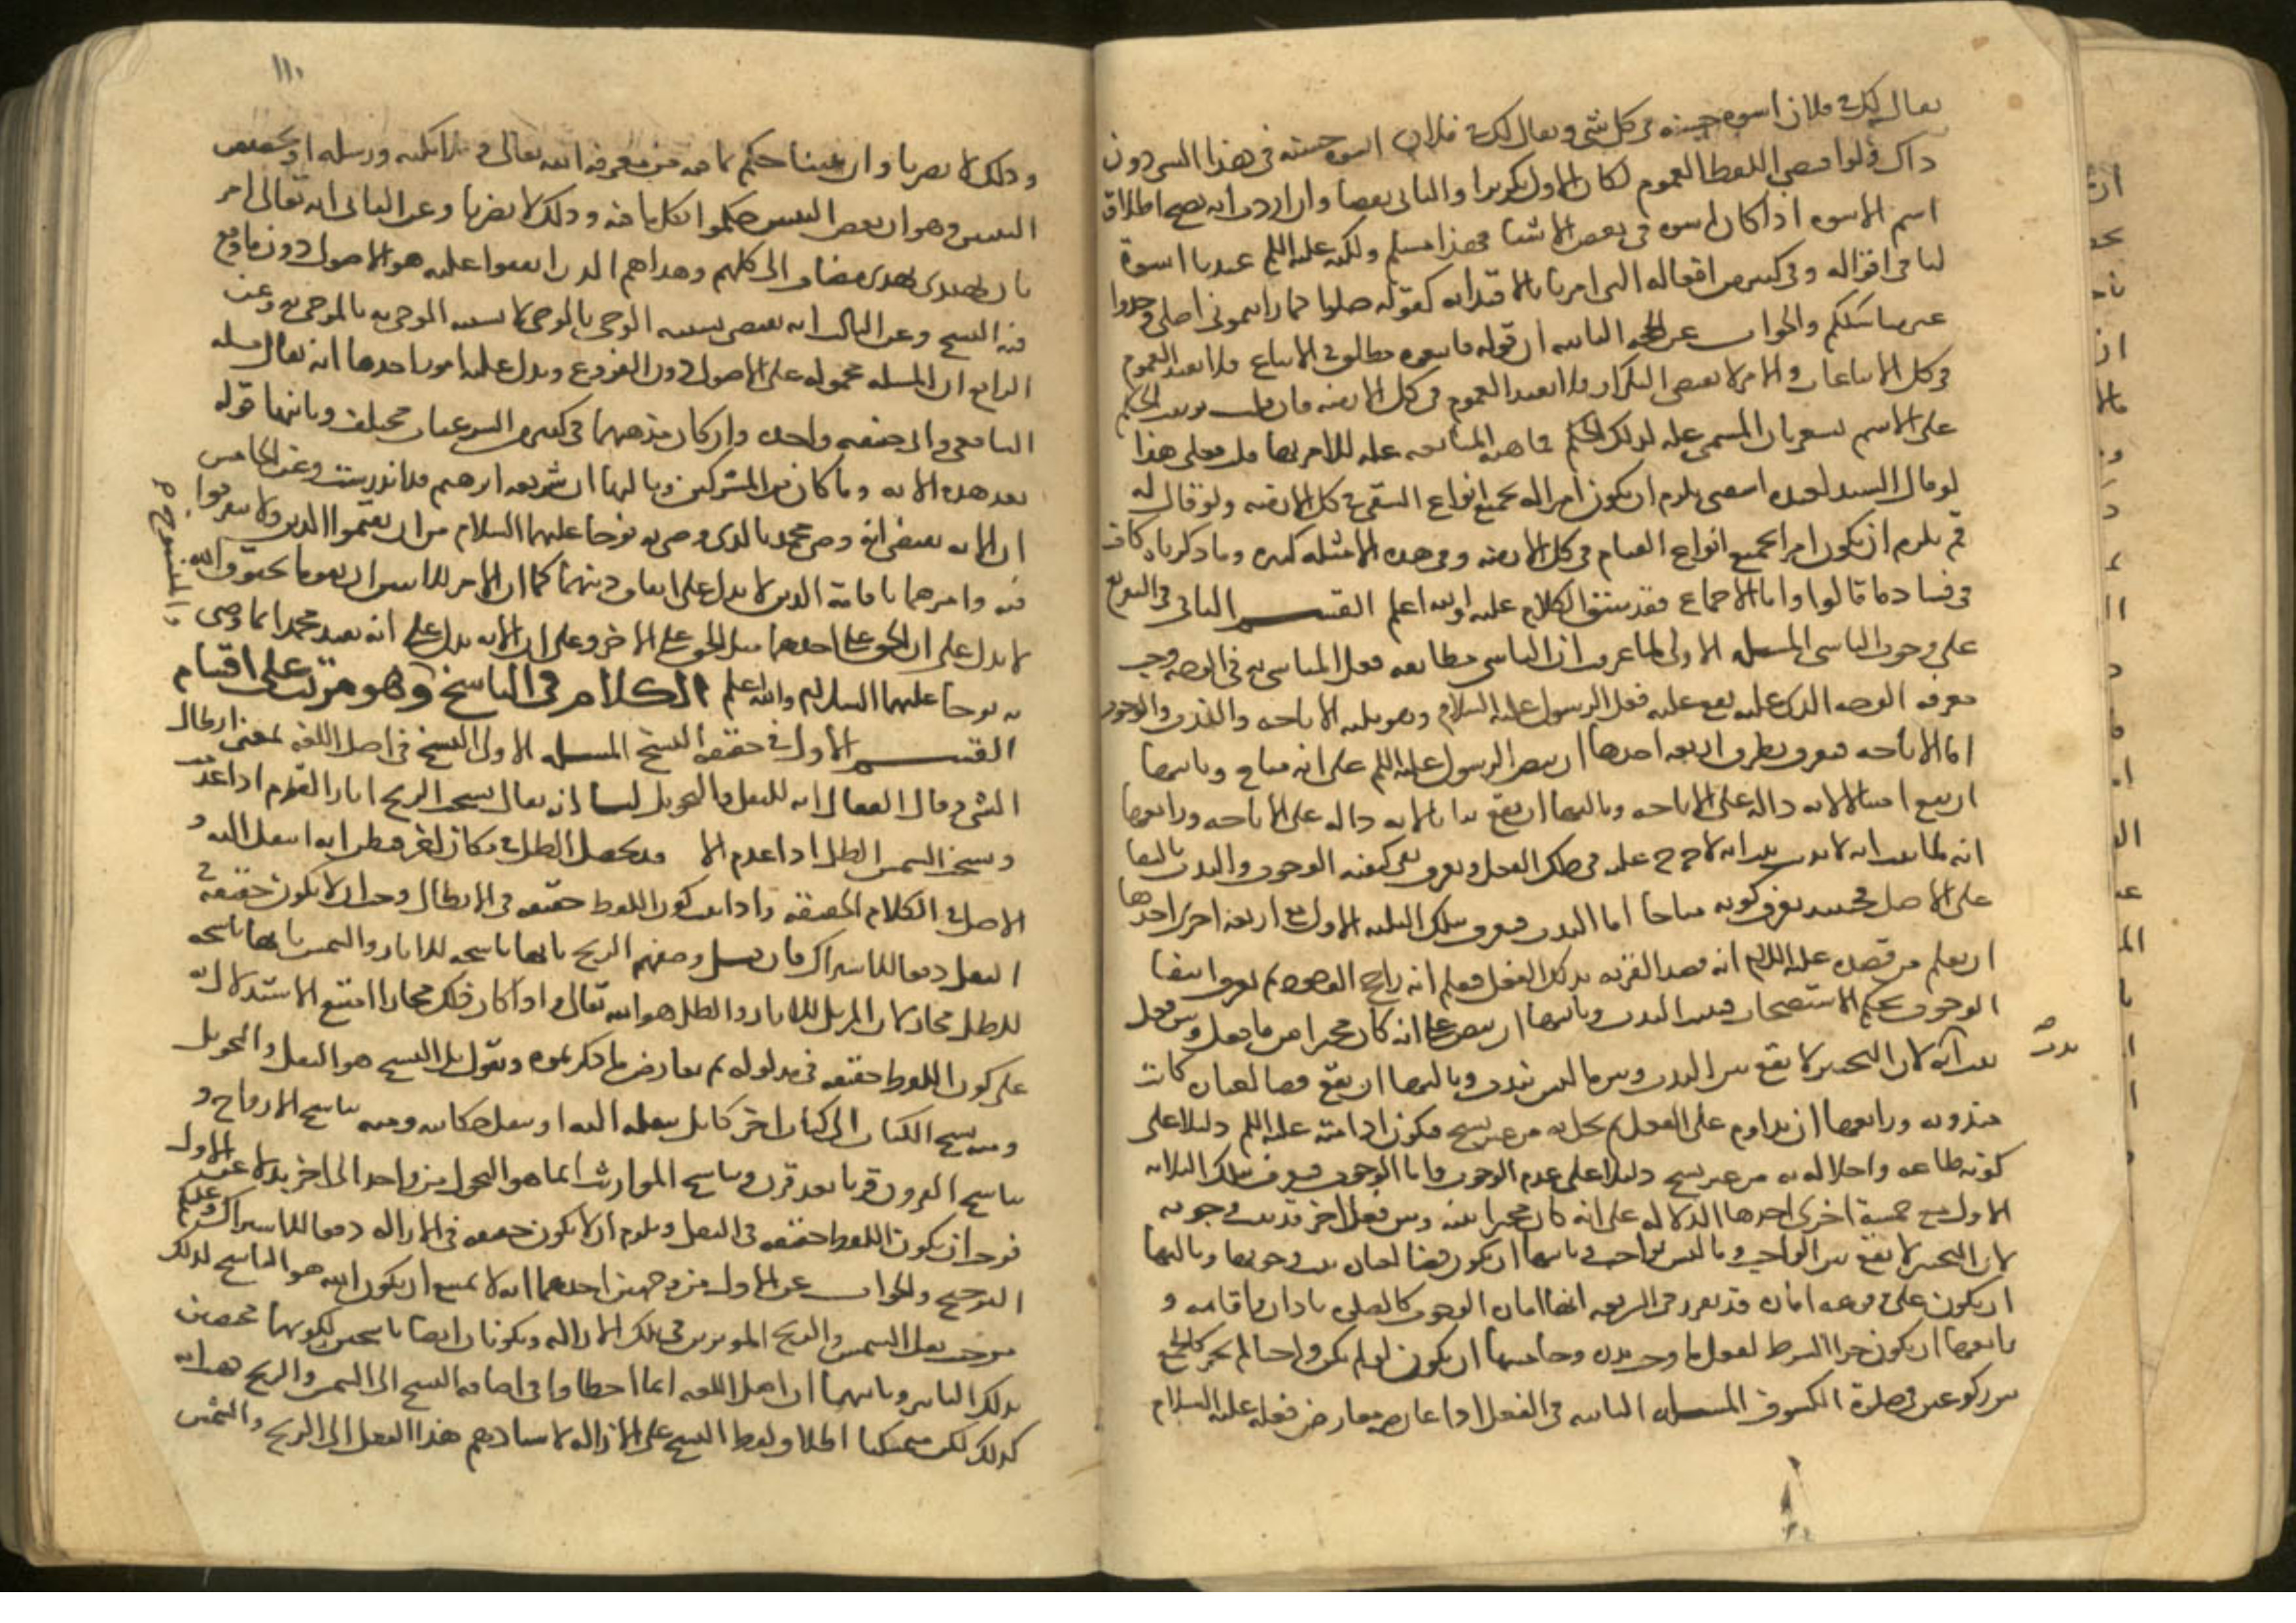 يقال لك في فلان اسوة حسنة في كل شي ويقال لك في فلان اسوة حسنة في هذا الشي دون
ذاك فلو اقتضى اللفظ العموم لكان الاول تكريرا والثاني نقضا وان اردت انه يصح اطلاق
اسم الاسوة اذا كان اسوة في بعض الاشيا فهذا مسلم ولكنه عليه السلم عندنا اسوة
لنا في اقواله وفي كثير من افعاله التي امرنا بالاقتدا به كقوله صلوا كما رايتموني اصلي وخذوا
عني مناسككم والجواب عن الحجة الثانية ان قوله فاتبعوه مطلق في الاتباع فلا يفيد العموم
في كل الاتباعات والامر لا يقتضي التكرار فلا يفيد العموم في كل الازمنة فان قلت ترتيب الحكم
على الاسم يشعر بان المسمى علة لذلك الحكم فماهية المتابعة علة للامر بها قلت فعلى هذا
لو قال السيد لعبده اسقني يلزم ان يكون امرا له بجميع انواع السقي في كل الازمنة ولو قال له
قم يلزم ان يكون امرا بجميع انواع القيام في كل الازمنة وفي هذه الامثلة كثيرة وما ذكرناه كاف
في فساد ما قالوا واما الاجماع فقد سبق الكلام عليه والله اعلم القسم الثاني في التفريع
على وجوب التاسي المسلة الاولى لما عرفت ان التاسي مطابقة فعل المتاسى به في الوجه وجب
معرفة الوجه الذي عليه يقع عليه فعل الرسول عليه السلام وهو ثلثة الاباحة والندب والوجوب
اما الاباحة فتعرف بطرق اربعة احدها ان ينص الرسول عليه السلم على انه مباح وثانيها
ان يقع امتثالا لاية دالة على الاباحة وثالثها ان يقع بيانا لاية دالة على الاباحة ورابعها
انه لما ثبت انه لا يذنب ثبت انه لا حرج عليه في ذلك الفعل ويعرف نفي كيفية الوجوب والندب بالبقا
على الاصل فحينئذ يعرف كونه مباحا اما الندب فيعرف بتلك الثلثة الاول مع اربعة اخرى احدها
ان يعلم من قصده عليه السلم انه قصد القربة بذلك الفعل فيعلم انه راجح الوجود ثم يعرف انتفا
الوجوب بحكم الاستصحاب فيثبت الندب وثانيها ان ينص على انه كان مخيرا بين ما فعل وبين فعل
ندب
ثبت انه لان التخيير لا يقع بين الندب وبين ما ليس بندب وثالثها ان يقع قضا لعبادة كانت
مندوبة ورابعها ان يداوم على الفعل ثم يخل به من غير نسخ فتكون ادامته عليه السلم دليلا على
كونه طاعة واخلاله به من غير نسخ دليلا على عدم الوجوب واما الوجوب فيعرف بتلك الثلاثة
الاول مع خمسة اخرى احدها الدلالة على انه كان مخيرا بينه وبين فعل اخر قد ثبت وجوبه
لان التخيير لا يقع بين الواجب وما ليس بواجب وثانيها ان يكون قضا لعبادة ثبت وجوبها وثالثها
ان يكون وقوعه امارة قد تقرر في الشريعة انها امارة الوجوب كالصلوة باذان واقامة و
رابعها ان يكون جزا لشرط لفعل ما وجب بنذر وخامسها ان يكون لو لم يكن واجبا لم يجز كالجمع
بين ركوعين في صلوة الكسوف المسلة الثانية في الفعل اذا عارضه معارض فعله عليه السلام
١١٠
وذلك لا يضرنا وان عنيتم ما فيه من معرفة الله تعالى وملائكته ورسله او تخصص
وذلك لا يضرنا وعن الثاني انه تعالى امر
بان يقتدي بهدى مضاف الى كلهم وهداهم الذي اتفقوا عليه هو الاصول دون ما وقع
فيه النسخ وعن الثالث انه يقتضي تشبيه الوحي بالوحي لا تشبيه الموحى به بالموحى به وعن
الرابع ان الملة محمولة على الاصول دون الفروع ويدل عليه امور احدها انه يقال ملة
الشافعي وابي حنيفة واحدة وان كان مذهبهما في كثير من الشرعيات مختلف وثانيها قوله
بعد هذه الاية وما كان من المشركين وثالثها ان شريعة ابرهيم قد اندرست وعن الخامس
ان الاية تقتضي انه وصى محمدا بالذي وصى به نوحا عليهما السلام من ان يقيموا الدين ولا يتفرقوا
فيه وامرهما باقامة الدين لا يدل على اتفاق دينهما كما ان امر الاثنين ان يقوما بحقوق الله
لا يدل على ان الحق على احدهما مثل الحق على الاخر وعلى ان الاية تدل على انه تعبد محمدا بما وصى
به نوحا عليهما السلام والله اعلم الكلام في الناسخ وهو مرتب على اقسام
والمنسوخ
القسم الاول في حقيقة النسخ المسلة الاولى النسخ في اصل اللغة بمعنى ابطال
الشي وقال القفال انه للنقل والتحويل لنا انه يقال نسخت الريح اثار القوم اذا عدمت
ونسخت الشمس الظل اذا عدم الا قد يحصل الظل في مكان اخر فظن انه انتقل اليه و
الاصل في الكلام الحقيقة واذا ثبت كون اللفظ حقيقة في الابطال وجب ان لا يكون حقيقة في
النقل دفعا للاشتراك فان قيل وصفهم الريح بانها ناسخة للاثار والشمس بانها ناسخة
للظل مجاز لان المزيل للاثار والظل هو الله تعالى واذا كان ذلك مجازا امتنع الاستدلال به
على كون اللفظ حقيقة في مدلوله ثم نعارض ما ذكرتموه ونقول بل النسخ هو النقل والتحويل
ومنه نسخ الكتاب الى كتاب اخر كانك تنقله اليه او تنقل حكايته ومنه تناسخ الارواح و
تناسخ القرون قرنا بعد قرن وتناسخ المواريث انما هو التحول من واحد الى اخر بدلا عن الاول
فوجب ان يكون اللفظ حقيقة في النقل ويلزم ان لا يكون حقيقة في الازالة دفعا للاشتراك وعليكم
الترجيح والجواب عن الاول من وجهين احدهما انه لا يمتنع ان يكون الله هو الناسخ لذلك
من حيث فعل الشمس والريح المؤثرين في تلك الازالة ويكونان ايضا ناسخين لكونهما مختصين
بذلك التاثير وثانيهما ان اهل اللغة انما اخطاوا في اضافة النسخ الى الشمس والريح فهب انه
كذلك لكن متمسكنا اطلاق لفظ النسخ على الازالة لاسنادهم هذا الفعل الى الريح والشمس